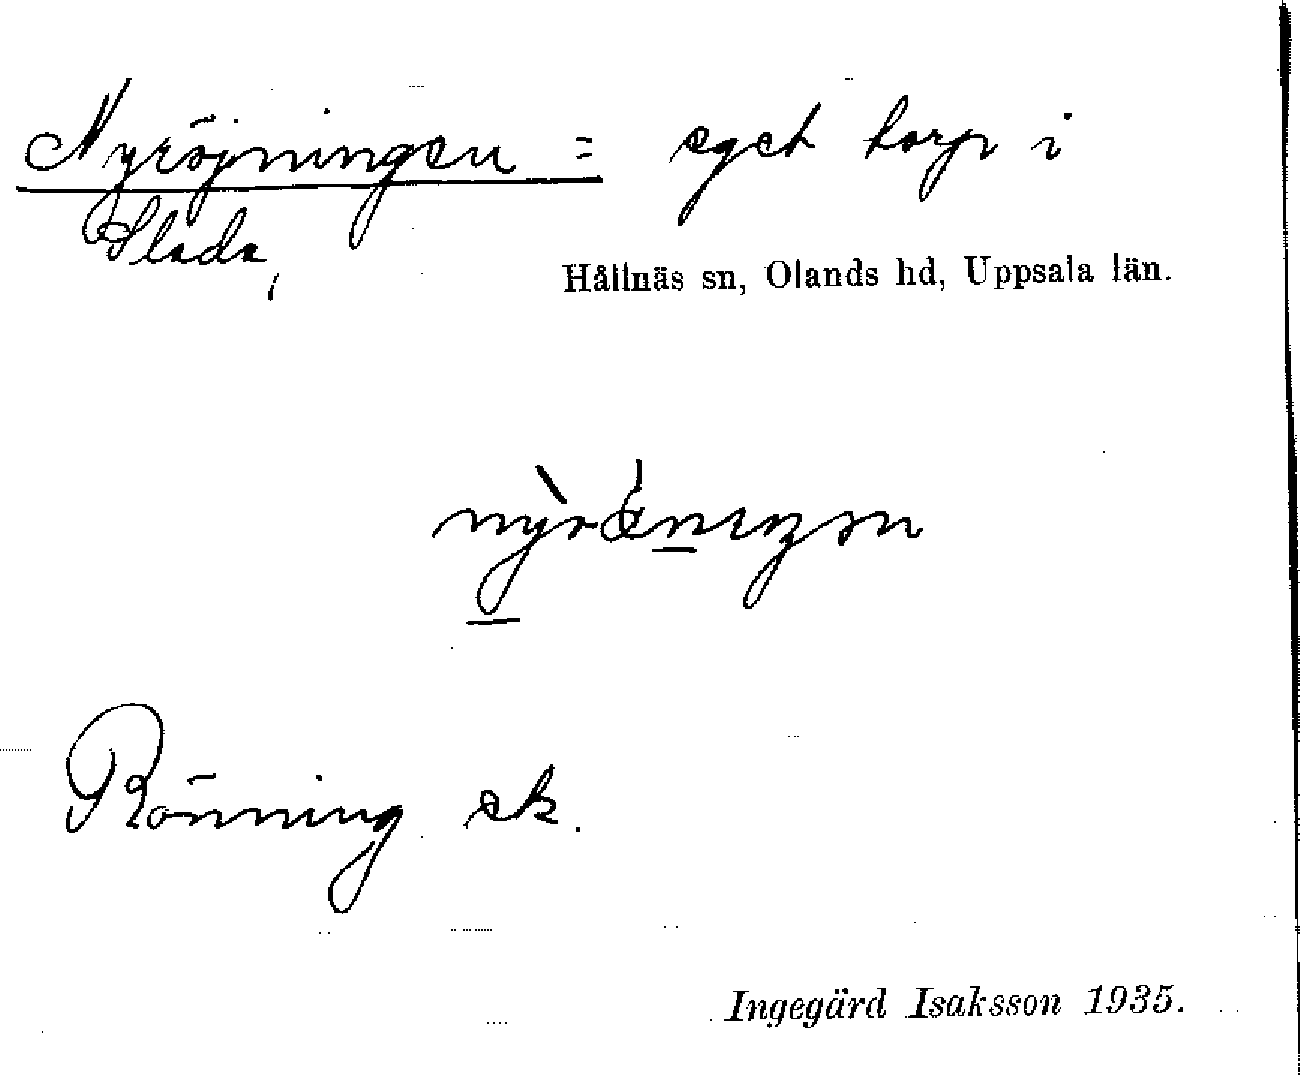 Nyröjningen = eget torp i
Slada,
Hållnäs sn, Olands hd, Uppsala län.
Rönning ek.
Ingegärd Isaksson 1935.